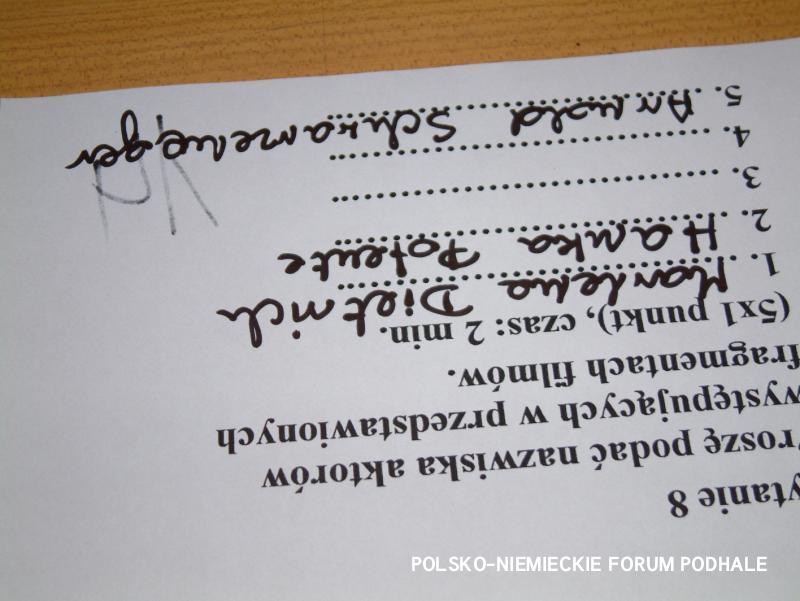 ytanie 8
roszę podać nazwiska aktorów
występujących w przedstawionych
fragmentach filmów.
(5x1 punkt), czas: 2 min.
1. Marlena Dietrich
2. Hanka Potente
3. ........................................
4. ........................................
5. Arnold Schwarzeneger
POLSKO-NIEMIECKIE FORUM PODHALE